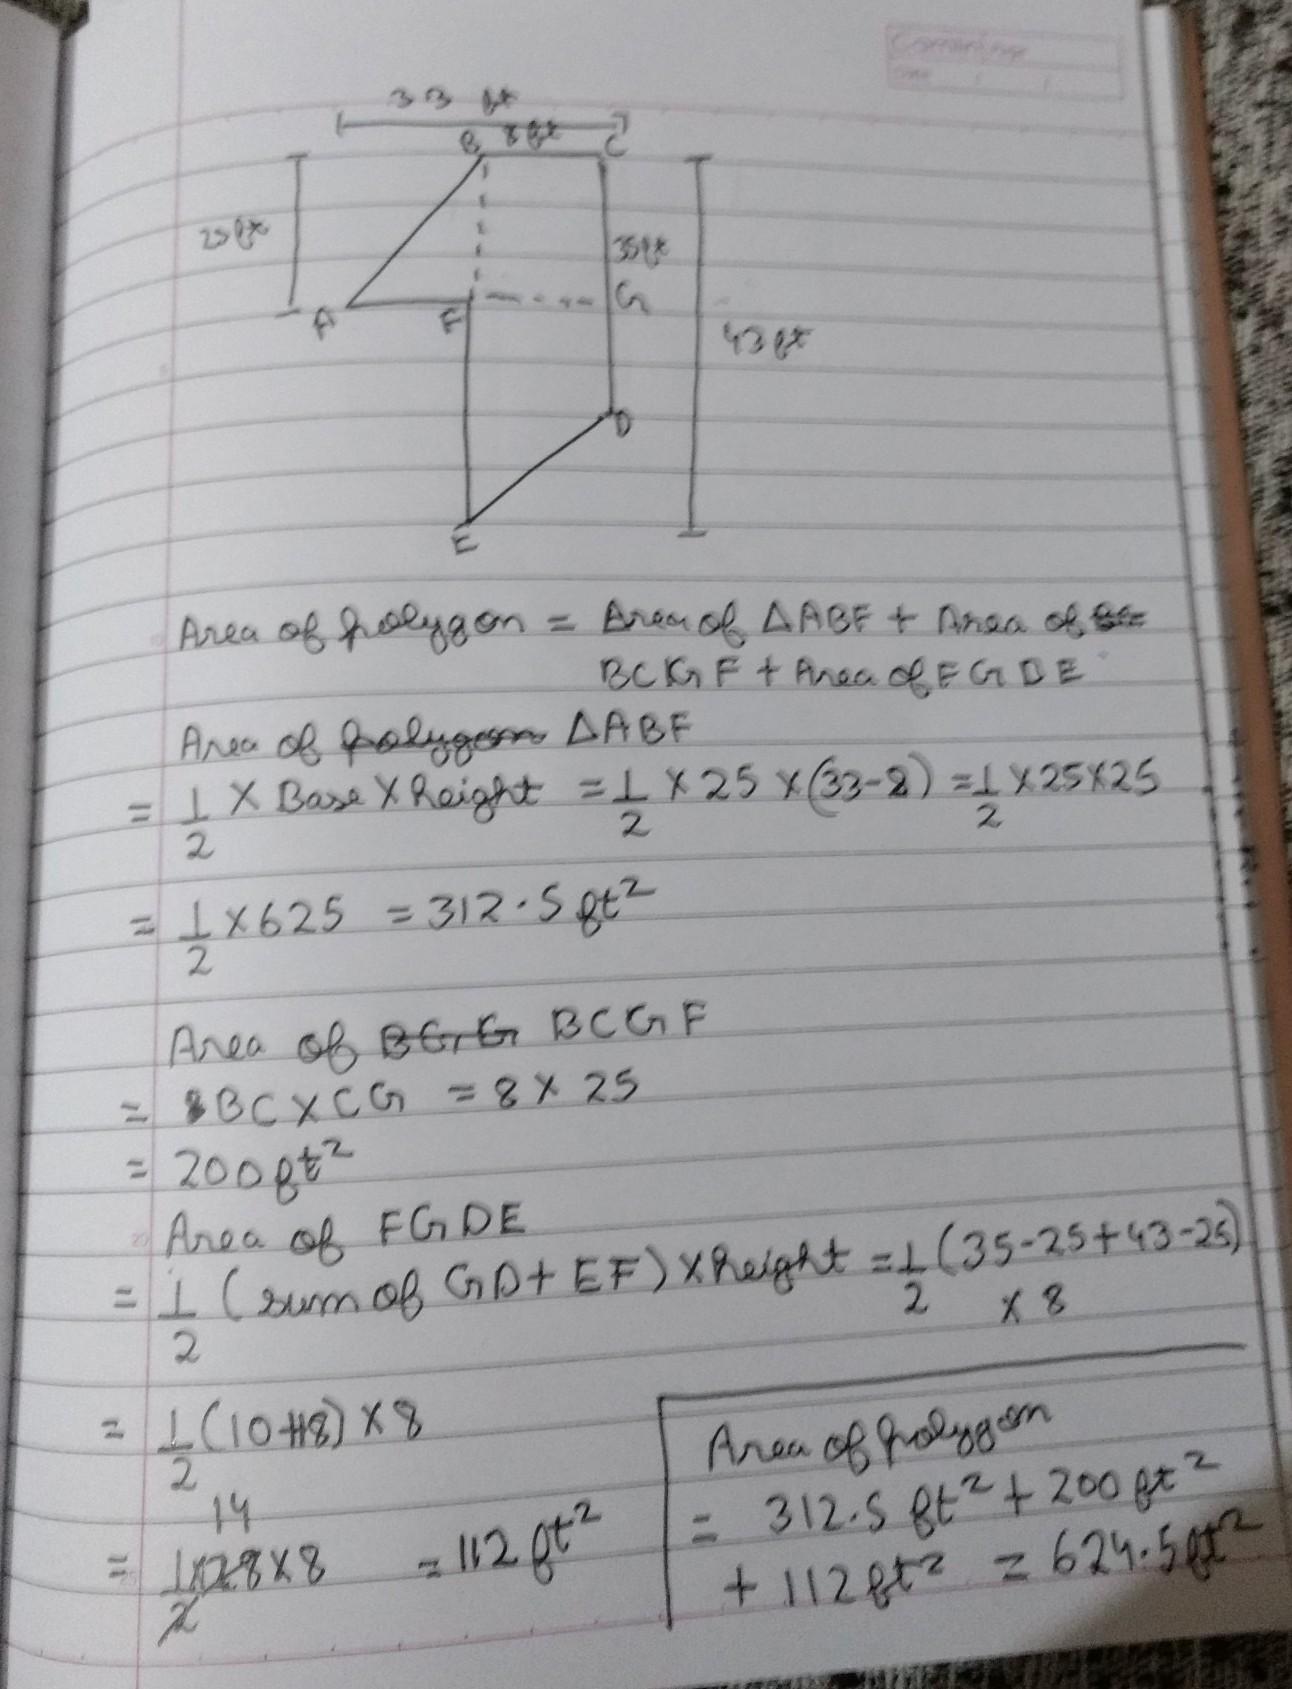 33 ft
B 8ft C
25ft
35ft
G
A F
43ft
D
E
Area of polygon = Area of ΔABF + Area of
BCGF + Area of FGDE
Area of polygon ΔABF
= 1/2 × Base × height = 1/2 × 25 × (33-8) = 1/2 × 25×25
= 1/2 × 625 = 312.5 ft²
Area of BGG BCGF
= BC × CG = 8 × 25
= 200ft²
Area of FGDE
= 1/2 (sum of GD + EF) × height = 1/2 (35-25+43-25)
× 8
= 1/2 (10+18) × 8
14
= 1/2 × 28 × 8 = 112 ft²
Area of polygon
= 312.5 ft² + 200 ft²
+ 112ft² = 624.5ft²